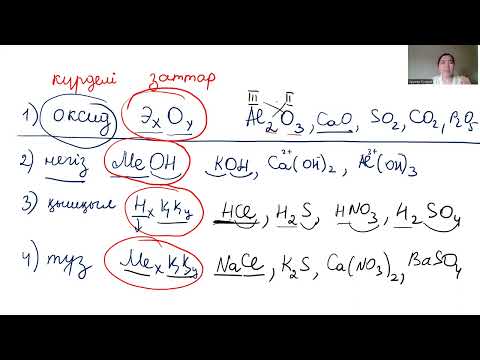 күрделі заттар
1) оксид ЭxOy Al2O3, CaO, SO2, CO2, P2O5
III II
2) негіз MeOH KOH, Ca(OH)2, Al(OH)3
2+ 3+
3) қышқыл HxҚҚy HCl, H2S, HNO3, H2SO4
4) тұз MexҚҚy NaCl, K2S, Ca(NO3)2, BaSO4